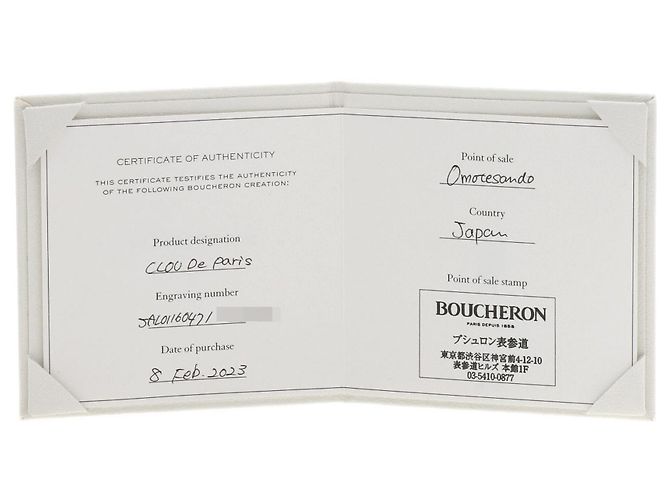 CERTIFICATE OF AUTHENTICITY
THIS CERTIFICATE TESTIFIES THE AUTHENTICITY
OF THE FOLLOWING BOUCHERON CREATION:
Product designation
CLOU De Paris
Engraving number
JAL01160471
Date of purchase
8 Feb. 2023
Point of sale
Omotesando
Country
Japan
Point of sale stamp
BOUCHERON
PARIS DEPUIS 1858
ブシュロン表参道
東京都渋谷区神宮前4-12-10
表参道ヒルズ 本館1F
03-5410-0877